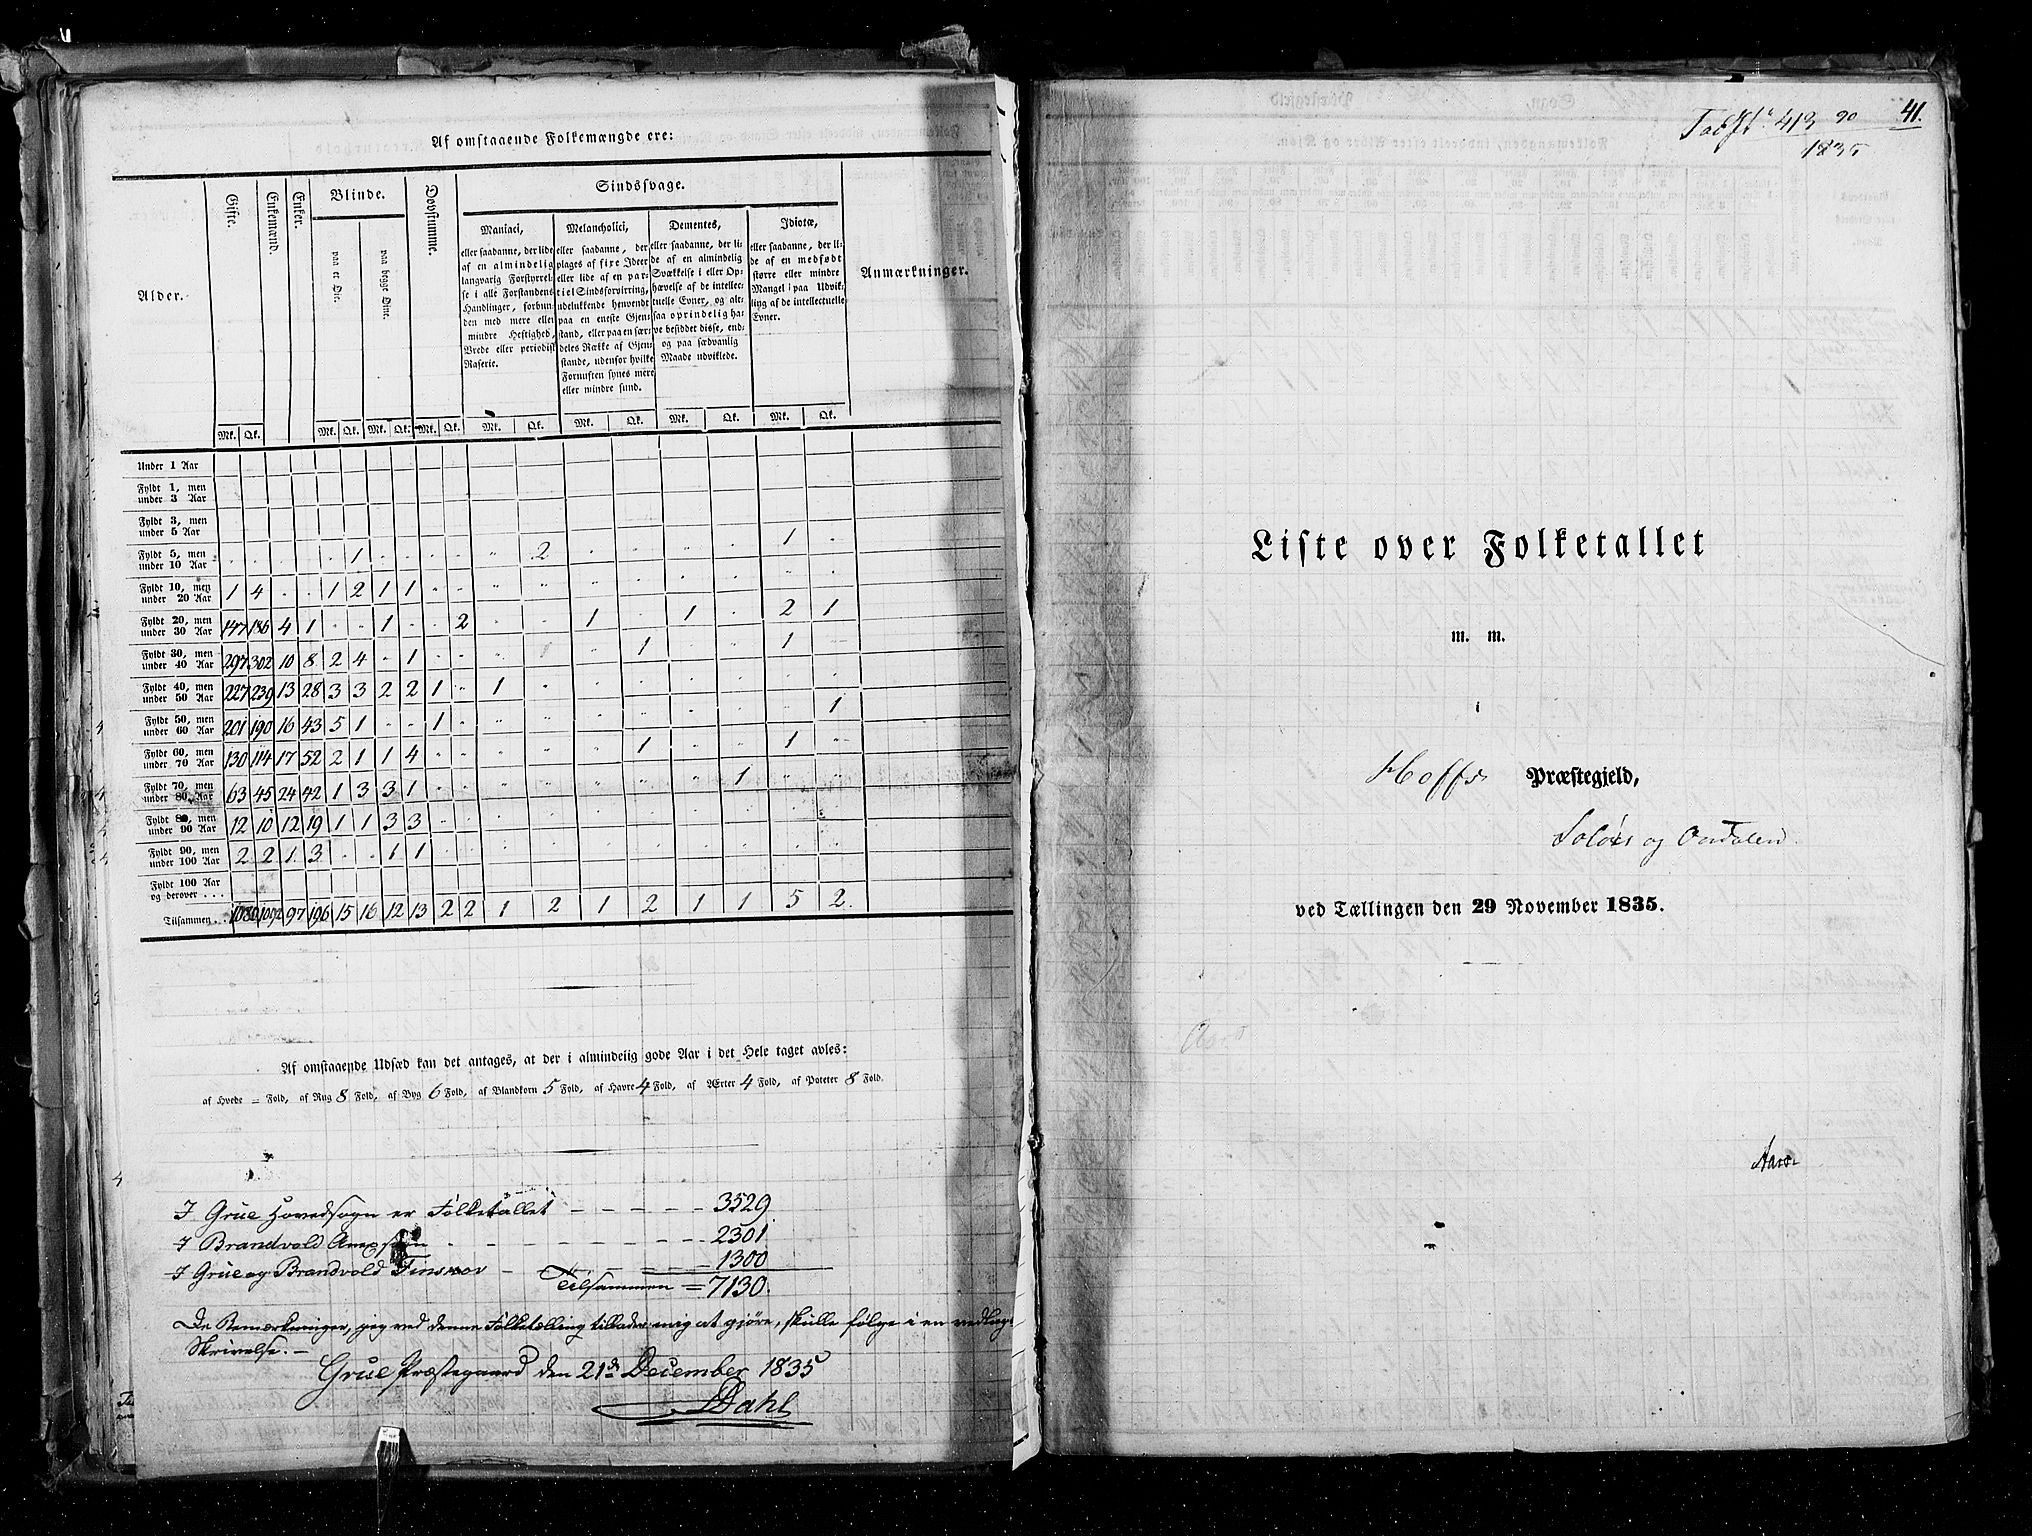 Af omstaaende Folkemængde ere:
Alder. Gifte. Enkemænd. Enker. Blinde. Døvstumme. Sindssvage. Anmærkninger.
paa et Øie. paa begge Øine.
Maniaci,
eller saadanne, der lide
af en almindelig
langvarig Forstyrrel-
se i alle Forstandens
Handlinger, forbun-
den med mere eller
mindre Heftighed,
Vrede eller periodisk
Raserie.
Melancholici,
eller saadanne, der
plages af fixe Ideer
eller lide af en par-
tiel Sindsforvirring,
udelukkende henvendt
paa en eneste Gjen-
stand, eller paa en sær-
deles Række af Gjen-
stande, udenfor hvilke
Fornuften synes mere
eller mindre sund.
Dementes,
eller saadanne, der li-
de af en almindelig
Svækkelse i eller Op-
hævelse af de intellec-
tuelle Evner, og alt-
saa oprindelig ha-
ve besiddet disse, end-
og paa sædvanlig
Maade udviklede.
Idiotæ,
eller saadanne, der li-
de af en medfødt
større eller mindre
Mangel paa Udvik-
ling af de intellectuelle
Evner.
Mk. Qk. Mk. Qk. Mk. Qk. Mk. Qk. Mk. Qk. Mk. Qk. Mk. Qk. Mk. Qk.
Under 1 Aar
Fyldt 1, men
under 3 Aar
Fyldt 3, men
under 5 Aar
Fyldt 5, men
under 10 Aar 1 2 1
Fyldt 10, men
under 20 Aar 1 4 1 2 1 1
Fyldt 20, men
under 30 Aar 147 186 4 1 1 2 1 1 2 1
Fyldt 30, men
under 40 Aar 297 302 10 8 2 4 1 1 1
Fyldt 40, men
under 50 Aar 227 239 13 28 3 3 2 2 1 1
Fyldt 50, men
under 60 Aar 201 190 16 43 5 1 1 1
Fyldt 60, men
under 70 Aar 130 114 17 52 2 1 1 4 1 1
Fyldt 70, men
under 80, Aar 63 45 24 42 1 3 3 1 1
Fyldt 80, men
under 90 Aar 12 10 12 19 1 1 3 3
Fyldt 90, men
under 100 Aar 2 2 1 3 1 1
Fyldt 100 Aar
og derover . . .
Tilsammen . 1080 1092 97 196 15 16 12 13 2 2 1 2 1 2 1 1 5 2.
Af omstaaende Udsæd kan det antages, at der i almindelig gode Aar i det Hele taget avles:
af Hvede = Fold, af Rug 8 Fold, af Byg 6 Fold, af Blandkorn 5 Fold, af Havre 4 Fold, af Ærter 4 Fold, af Poteter 8 Fold.
I Grue Hovedsogn er Folketallet - - - - - 3529
I Brandvold - - - - - - - 2301
I Grue og Brandvold Finskov - - - - - 1300
Tilsammen = 7130.
De Bemærkninger, jeg ved denne Folketælling tillader mig at gjøre, skulle følge i en vedlagt
Skrivelse. -
Grue Præstegaard den 21de December 1835
Dahl
41.
413
1835
Liste over Folketallet
m. m.
i
Hoffs Præstegjeld,
Soløers og Oudalen
ved Tællingen den 29 November 1835.